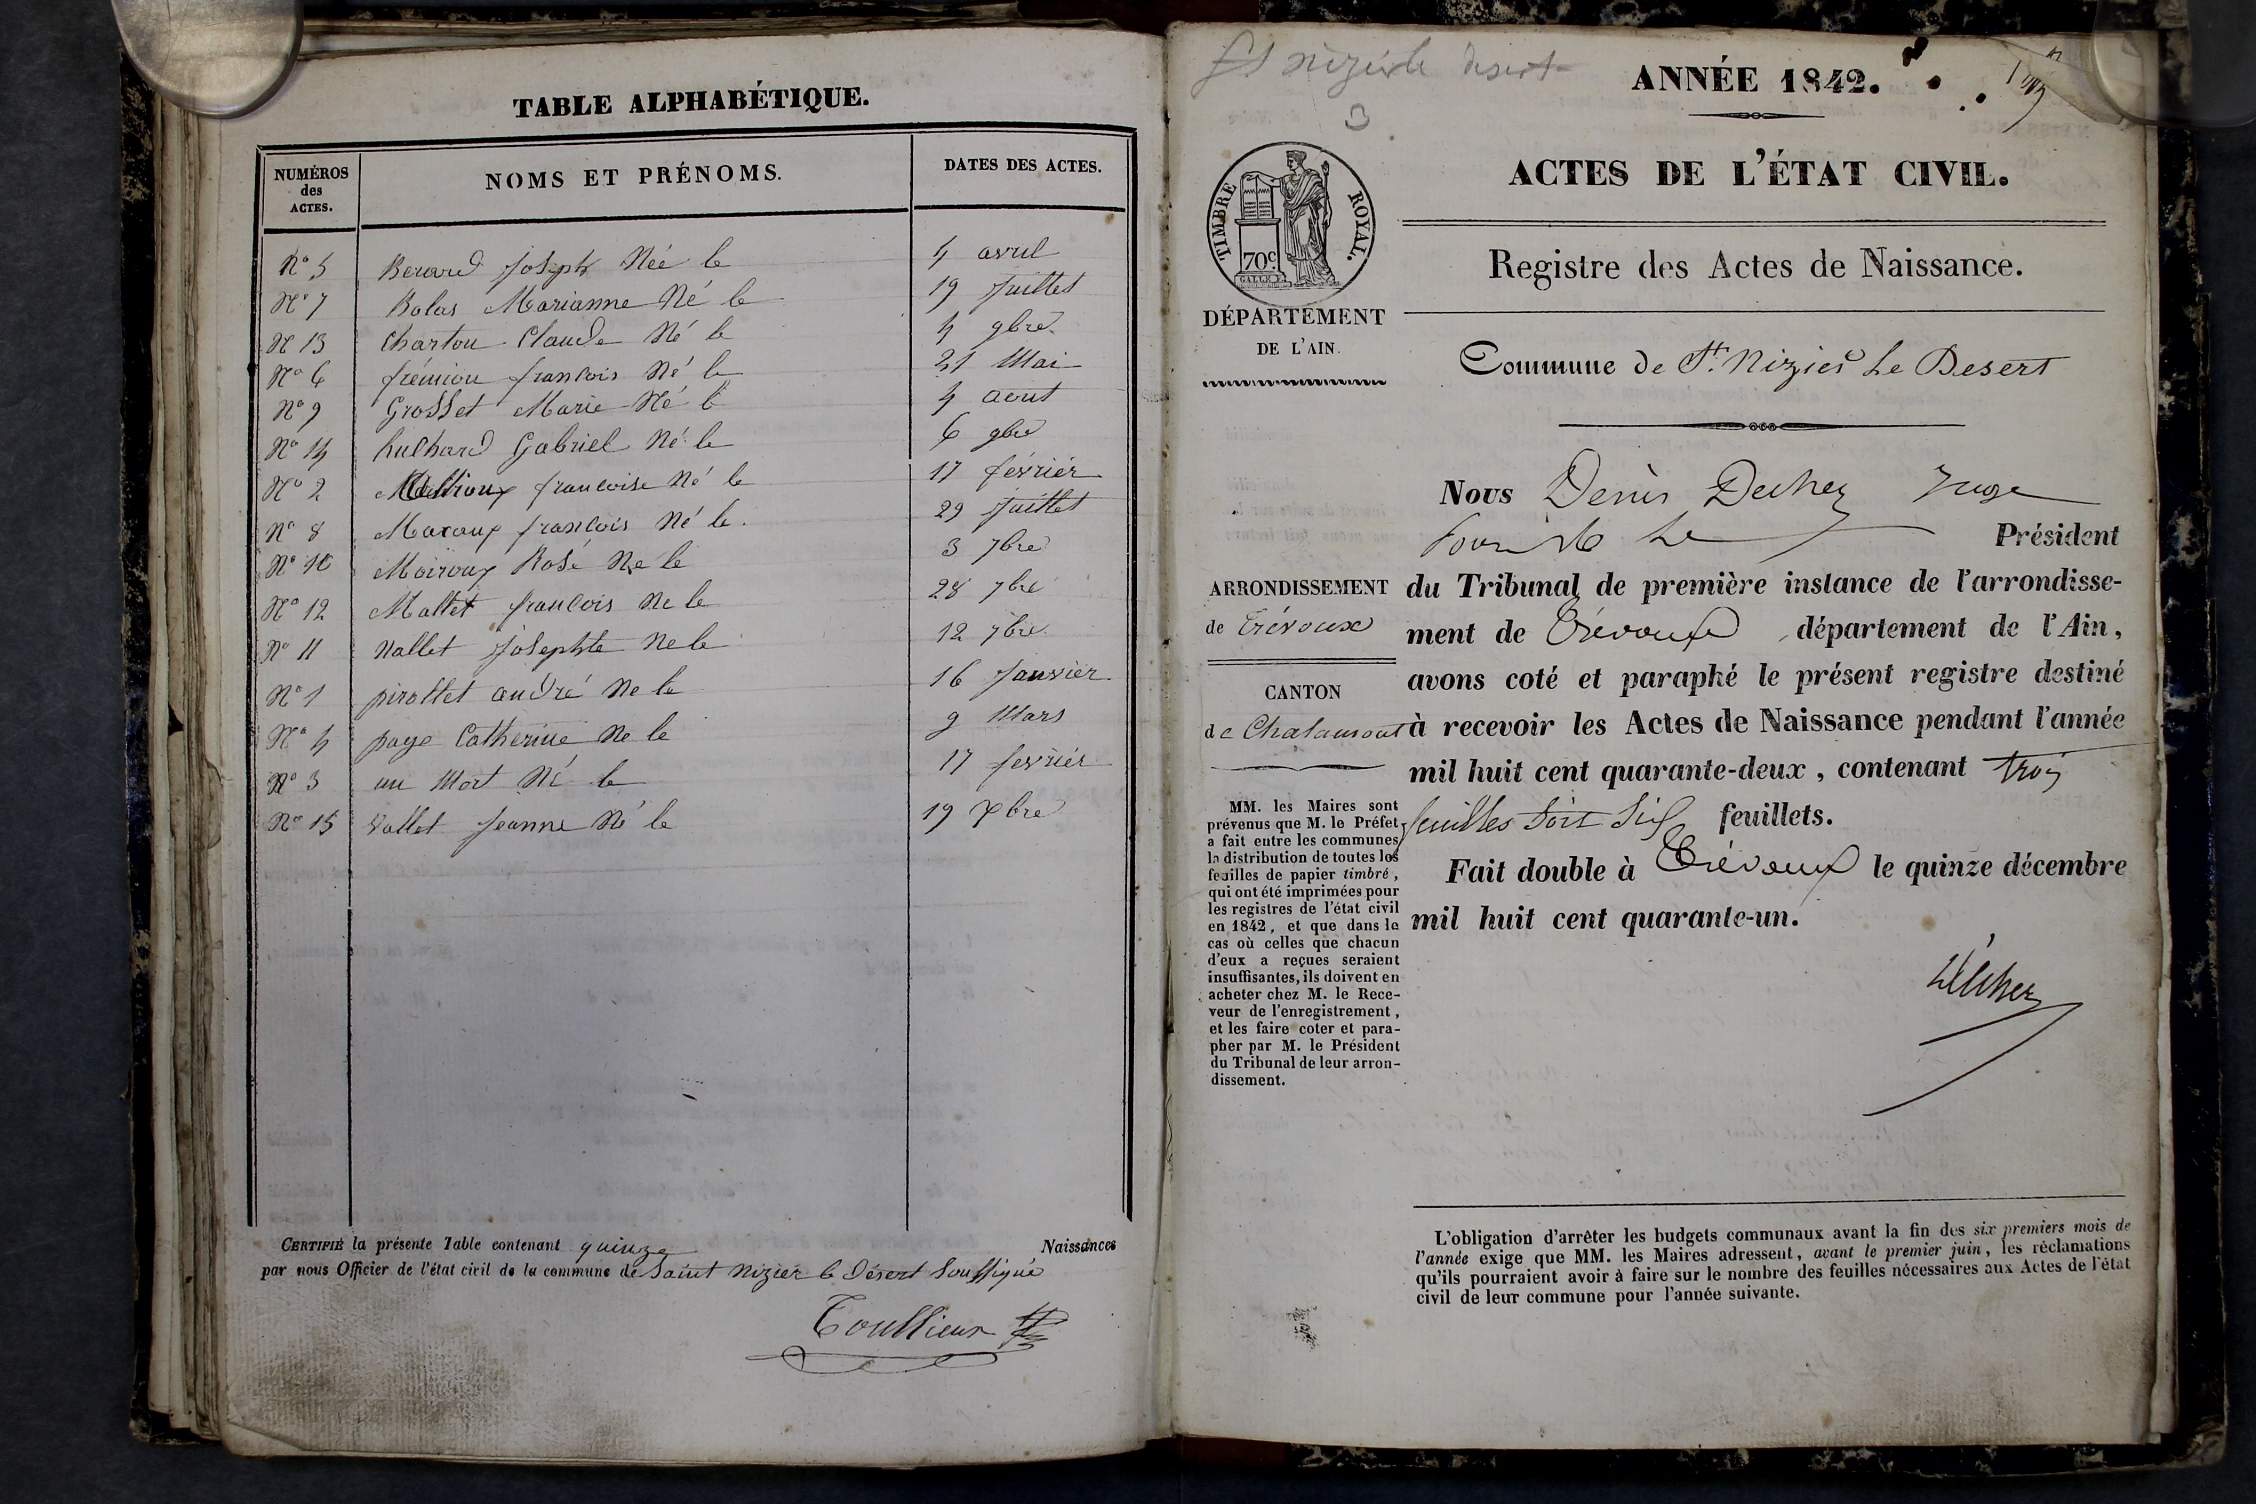 TABLE ALPHABÉTIQUE.
NUMÉROS des ACTES. NOMS ET PRÉNOMS. DATES DES ACTES.
No 5 Berard Joseph Née le 4 avril
No 7 Bolas Marianne Né le 19 Juillet
No 13 Chartou Claude Né le 4 9bre
No 6 frémiou francois Né le 21 Mai
No 9 Grosset Marie Né le 4 aout
No 14 huchard Gabriel Né le 6 9bre
No 2 francoise Né le 17 février
No 8 Maraux francois Né le 29 Juillet
No 10 Moiroux Rose Né le 3 7bre
No 12 Mallet francois Ne le 28 7bre
No 11 Nallet Josephte Ne le 12 7bre
No 1 pirollet andré Ne le 16 Janvier
No 4 page Catherine Ne le 9 Mars
No 3 un Mort Né le 17 fevrier
No 15 Vallet Jeanne Né le 19 Xbre
CERTIFIÉ la présente Table contenant quinze Naissances
par nous Officier de l'état civil de la commune de Saint Nizier le Désert Soussigné
St nizier le desert
3
ANNÉE 1842.
ACTES DE L'ÉTAT CIVIL.
TIMBRE ROYAL.
70c.
Registre des Actes de Naissance.
DÉPARTEMENT
DE L'AIN.
Commune de St. Nizier Le Desert
Nous Denis Decher Juge
pour Le Président
ARRONDISSEMENT
de Trévoux
CANTON
de Chalamont
du Tribunal de première instance de l'arrondisse-
ment de Trévoux, département de l'Ain,
avons coté et paraphé le présent registre destiné
à recevoir les Actes de Naissance pendant l'année
mil huit cent quarante-deux, contenant trois
feuilles soit Six feuillets.
Fait double à Trévoux le quinze décembre
mil huit cent quarante-un.
Decher
MM. les Maires sont
prévenus que M. le Préfet
a fait entre les communes
la distribution de toutes les
feuilles de papier timbré,
qui ont été imprimées pour
les registres de l'état civil
en 1842, et que dans le
cas où celles que chacun
d'eux a reçues seraient
insuffisantes, ils doivent en
acheter chez M. le Rece-
veur de l'enregistrement,
et les faire coter et para-
pher par M. le Président
du Tribunal de leur arron-
dissement.
L'obligation d'arrêter les budgets communaux avant la fin des six premiers mois de
l'année exige que MM. les Maires adressent, avant le premier juin, les réclamations
qu'ils pourraient avoir à faire sur le nombre des feuilles nécessaires aux Actes de l'état
civil de leur commune pour l'année suivante.